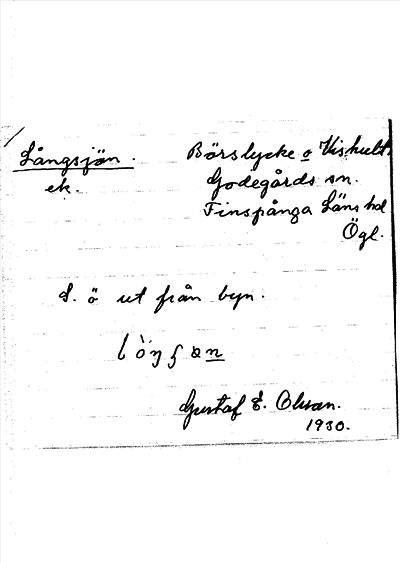 Långsjön.
ek.
Börslycke o Vishult
Godegårds sn.
Finspånga Läns hd
Ögl.
S. ö ut från byn.
Gustaf E. Olsson.
1930.